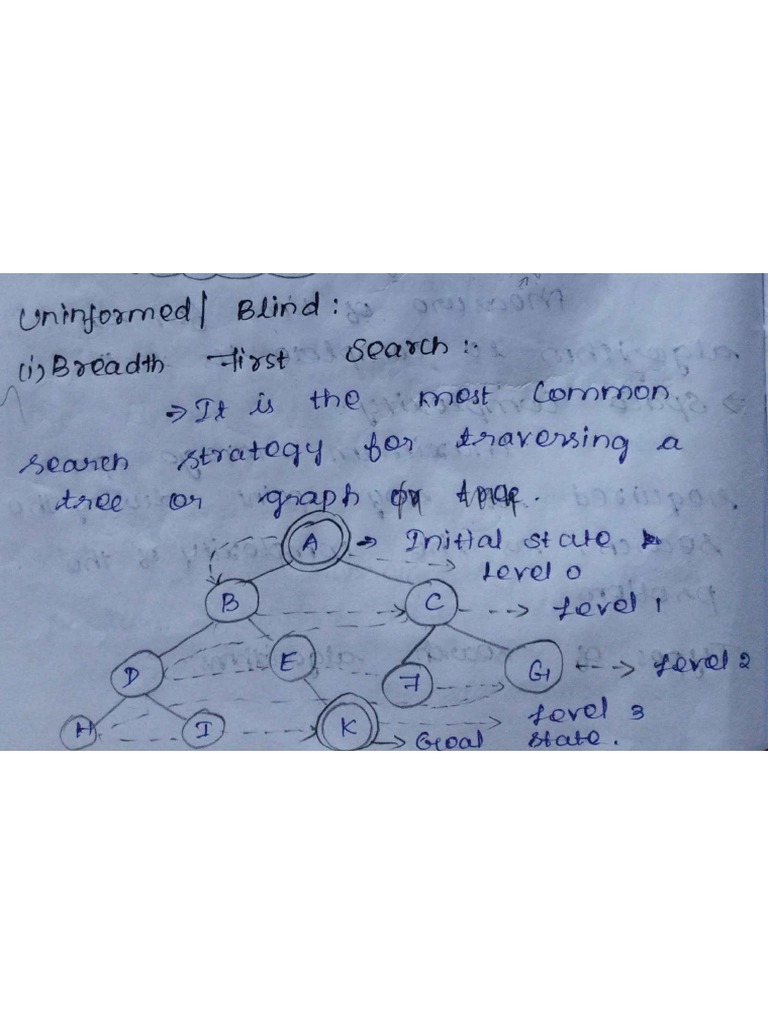 Uninformed/ Blind:
(i) Breadth First Search:
⇒ It is the most common
search strategy for traversing a
tree or graph
A → Initial state
Level 0
B C → Level 1
D E F G → Level 2
Level 3
H I K → Goal state.